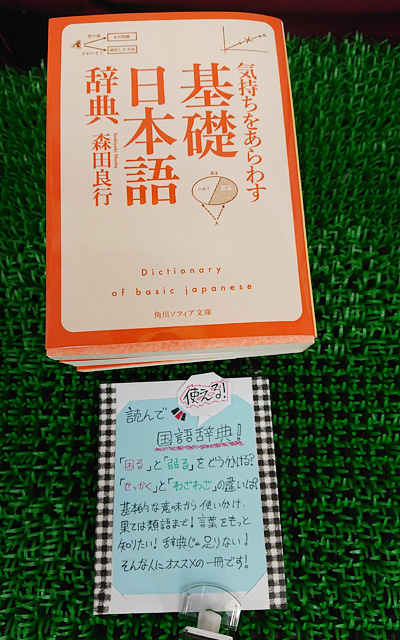 気持ちをあらわす
基礎
日本語
辞典
森田良行
Yoshiyuki Morita
Aは
Dictionary
of basic japanese
角川ソフィア文庫
使える!
読んで
国語辞典!
「困る」と「弱る」をどう分ける?
「せっかく」と「わざわざ」の違いは?
基本的な意味から使い分け、
果ては類語まで!言葉をもっと
知りたい!辞典じゃ足りない!
そんな人にオススメの一冊です!